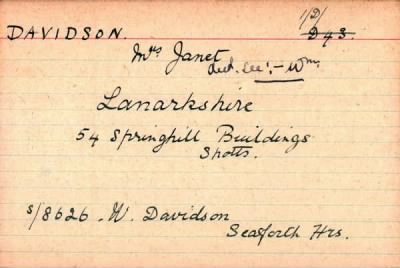 1/D/
DAVIDSON. D43.
Mrs Janet
see:- Wm.
Lanarkshire
54 Springhill Buildings
Shotts.
S/8626 - W. Davidson
Seaforth Hrs.